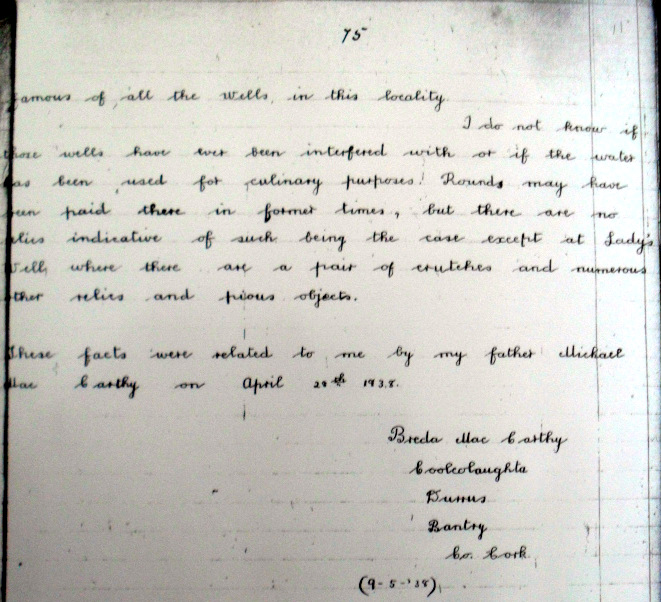 75
famous of all the wells in this locality.
I do not know if
those wells have ever been interfered with or if the water
has been used for culinary purposes. Rounds may have
been paid there in former times, but there are no
relics indicative of such being the case except at Lady's
Well where there are a pair of crutches and numerous
other relics and pious objects.
These facts were related to me by my father Michael
Mac Carthy on April 28th 1938.
Breda Mac Carthy
Coolcolaughta
Durrus
Bantry
Co. Cork
(9-5-'38)